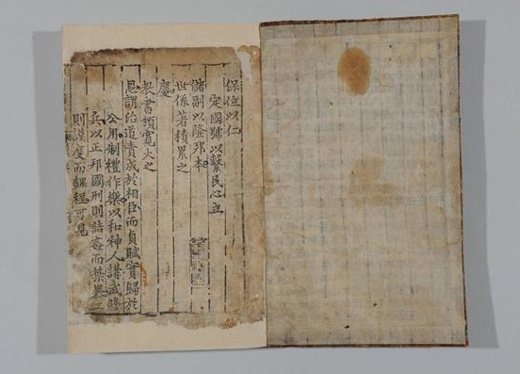 保位以仁
定國號以繫民心立
儲副以隆邦本
世係著積累之
慶
敎書頒寬大之
恩謂治道責成於相臣而貢賦實歸於
公用制禮作樂以和神人講武修
兵以正邦國刑則詰姦而禁暴工
則謹度而課程可見